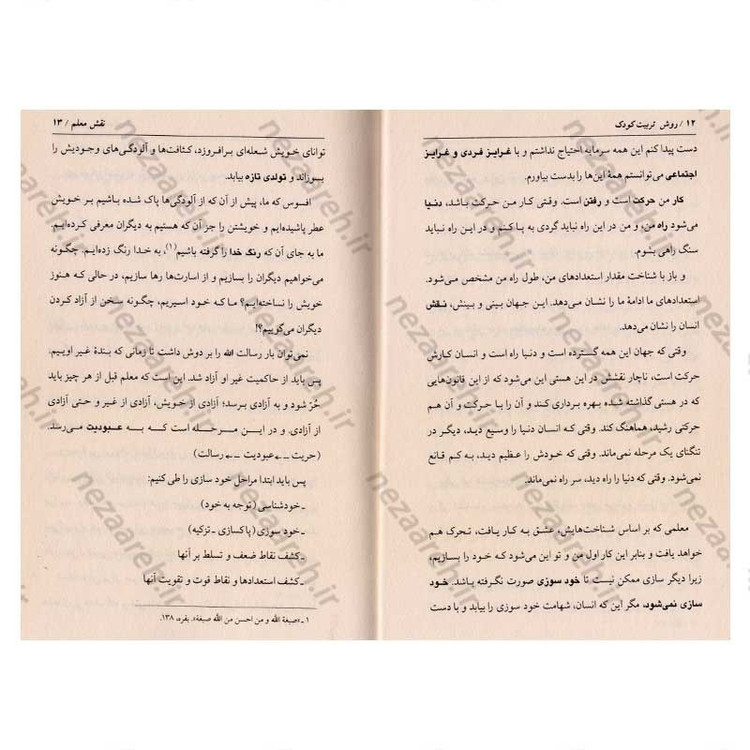 ۱۲ / روش تربیت کودک
دست پیدا کنم این همه سرمایه احتیاج نداشتم و با غرایز فردی و غرایز
اجتماعی می‌توانستم همهٔ این‌ها را بدست بیاورم.
کار من حرکت است و رفتن است. وقتی کار من حرکت باشد، دنیا
می‌شود راه من، و من در این راه نباید گردی به پا کنم و در این راه نباید
سنگ راهی بشوم.
و باز با شناخت مقدار استعدادهای من، طول راه من مشخص می‌شود.
استعدادهای ما ادامهٔ ما را نشان می‌دهد. این جهان بینی و بینش، نقش
انسان را نشان می‌دهد.
وقتی که جهان این همه گسترده است و دنیا راه است و انسان کارش
حرکت است، ناچار نقشش در این هستی این می‌شود که از این قانون‌هایی
که در هستی گذاشته شده بهره برداری کند و آن را با حرکت و آن هم
حرکتی رشید، هماهنگ کند. وقتی که انسان دنیا را وسیع دید، دیگر در
تنگنای یک مرحله نمی‌ماند. وقتی که خودش را عظیم دید، به کم قانع
نمی‌شود. وقتی که دنیا را راه دید، سر راه نمی‌ماند.
معلمی که بر اساس شناخت‌هایش، عشق به کار یافت، تحرک هم
خواهد یافت و بنابر این کار اول من و تو این می‌شود که خود را بسازیم،
زیرا دیگر سازی ممکن نیست تا خود سوزی صورت نگرفته باشد. خود
سازی نمی‌شود، مگر این که انسان، شهامت خود سوزی را بیابد و با دست
نقش معلم / ۱۳
توانای خویش شعله‌ای برافروزد، کثافت‌ها و آلودگی‌های وجودیش را
بسوزاند و تولدی تازه بیابد.
افسوس که ما، پیش از آن که از آلودگی‌ها پاک شده باشیم بر خویش
عطر پاشیده‌ایم و خویشتن را جز آن که هستیم به دیگران معرفی کرده‌ایم.
ما به جای آن که رنگ خدا را گرفته باشیم(۱)، به خدا رنگ زده‌ایم. چگونه
می‌خواهیم دیگران را بسازیم و از اسارت‌ها رها سازیم، در حالی که هنوز
خویش را نساخته‌ایم؟ ما که خود اسیریم، چگونه سخن از آزاد کردن
دیگران می‌گوییم؟!
نمی‌توان بار رسالت الله را بر دوش داشت تا زمانی که بندهٔ غیر اوییم.
پس باید از حاکمیت غیر او آزاد شد. این است که معلم قبل از هر چیز باید
حُرّ شود و به آزادی برسد؛ آزادی از خویش، آزادی از غیر و حتی آزادی
از آزادی. و در این مرحله است که به عبودیت می‌رسد.
(حریت ـ← عبودیت ـ← رسالت)
پس باید ابتدا مراحل خود سازی را طی کنیم:
ـ خودشناسی (توجه به خود)
ـ خود سوزی (پاکسازی ـ تزکیه)
ـ کشف نقاط ضعف و تسلط بر آنها
ـ کشف استعدادها و نقاط قوت و تقویت آنها
۱ ـ «صبغة الله و من احسن من الله صبغة». بقره، ۱۳۸.
nezaareh.ir
nezaareh.ir
nezaareh.ir
nezaareh.ir
nezaareh.ir
nezaareh.ir